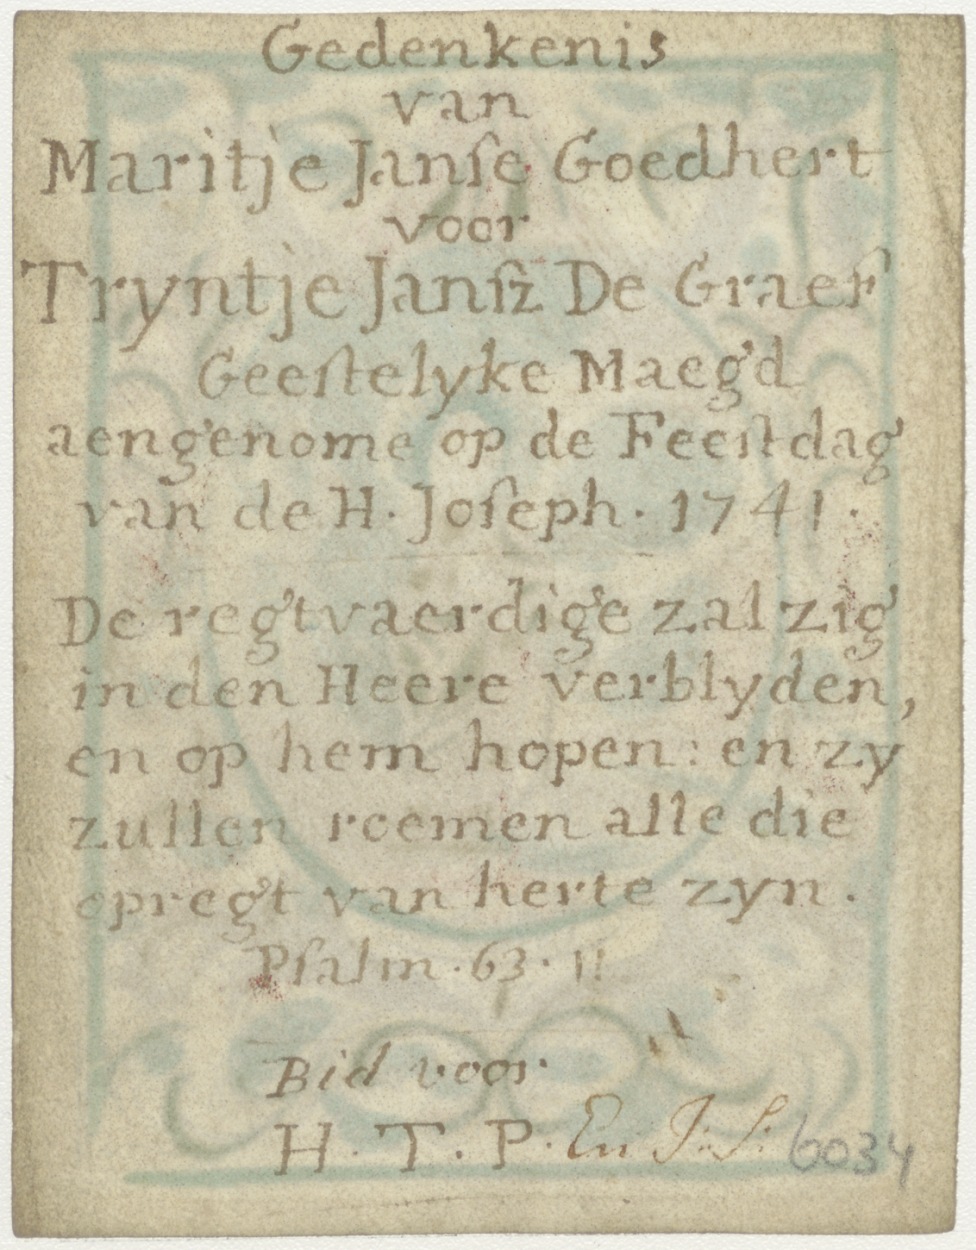 Gedenkenis
van
Maritje Janſe Goedhert
voor
Tryntje Janſz De Graef
Geeſtelyke Maegd
aengenome op de Feeſtdag
van de H. Joſeph. 1741.
De regtvaerdige zal zig
in den Heere verblyden,
en op hem hopen: en zy
zullen roemen alle die
opregt van herte zyn.
Pſalm. 63. 11
Bid voor
H. T. P. En J: S: 6034